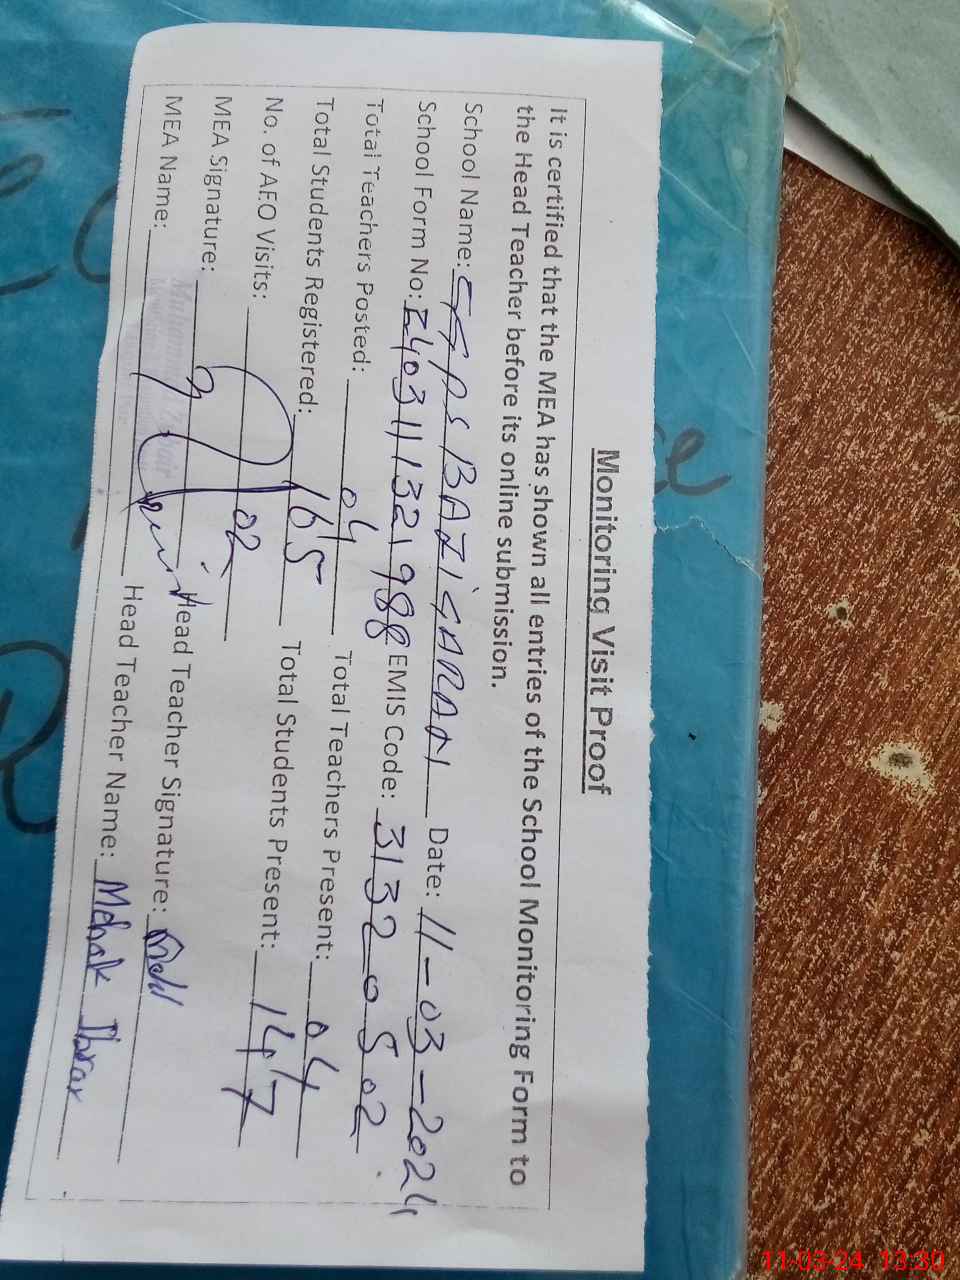 Monitoring Visit Proof
It is certified that the MEA has shown all entries of the School Monitoring Form to
the Head Teacher before its online submission.
School Name: GGPS BAZIGARAN Date: 11-03-2024
School Form No: 2403111321988 EMIS Code: 31320502
Total Teachers Posted: 04 Total Teachers Present: 04
Total Students Registered: 165 Total Students Present: 147
No. of AEO Visits: 02
MEA Signature: Head Teacher Signature:
MEA Name: Head Teacher Name: Mehak Ibrar
11-03-24 13:30